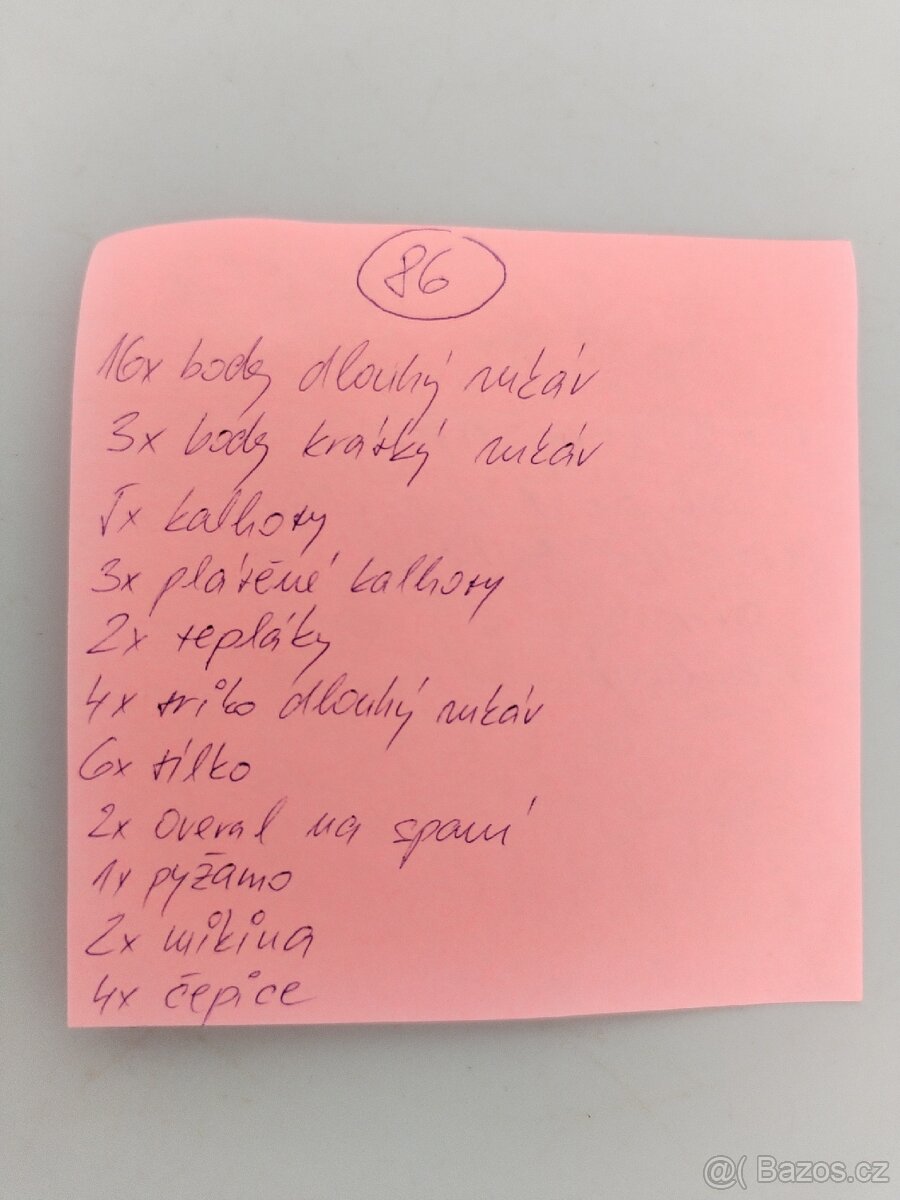 86
16x body dlouhý rukáv
3x body krátký rukáv
5x kalhoty
3x plátěné kalhoty
2x tepláky
4x triko dlouhý rukáv
6x tílko
2x overal na spaní
1x pyžamo
2x mikina
4x čepice
@( Bazos.cz